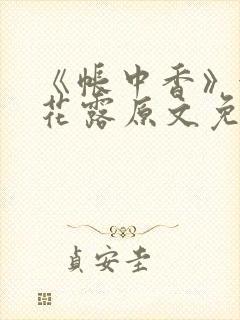 《帳中香》
花露原文免
貞安圭